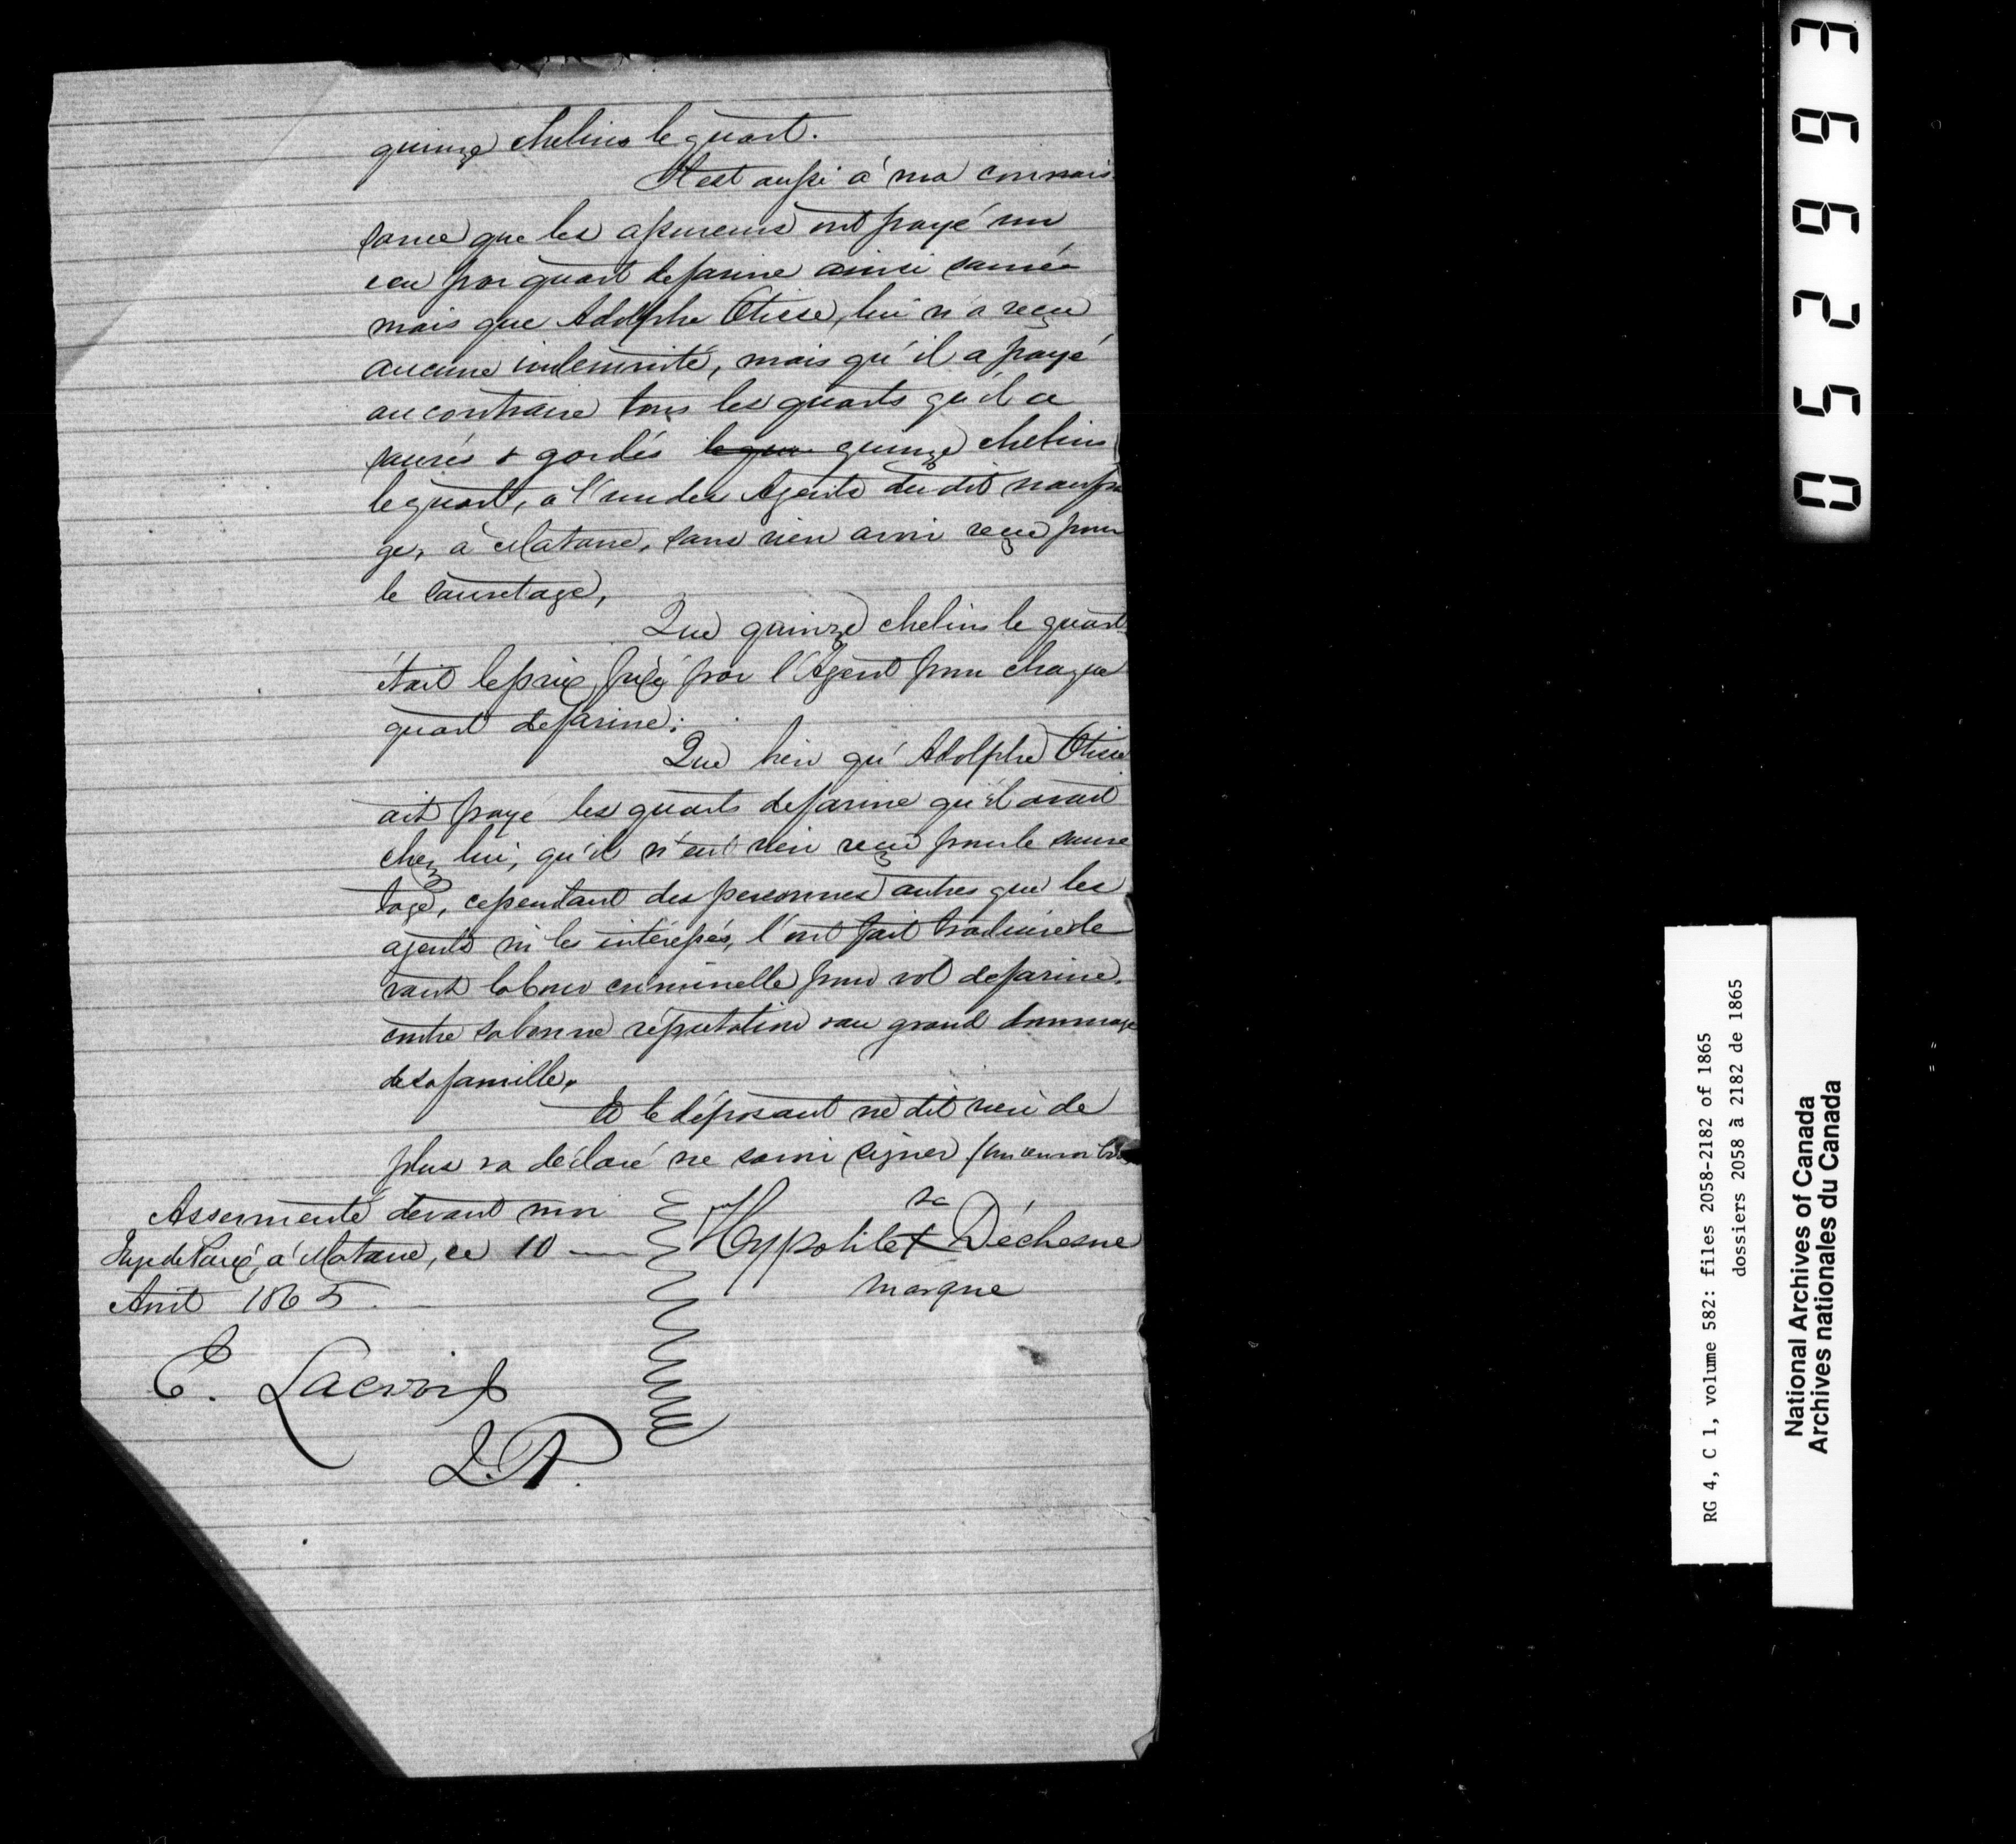 quinze chelins le quart.
Il est aussi à ma connais
sance que les assureurs ont payé un
ecu par quart de farine ainsi sauvée
mais que Adolphe Otisse, lui n'a reçu
aucune indemnité, mais qu'il a payé
au contraire tous les quarts qu'il a
sauvés & gardés le qua quinze chelins
le quart, a l'un des Agents du dit naufra
ge, à Matane, sans rien avoir reçu pour
le sauvetage,
Que quinze chelins le quart
était le prix fixé par l'Agent pour chaque
quart de farine;
Que bien qu'Adolphe Otisse
ait payé les quarts de farine qu'il avait
chez lui, qu'il n'eut rien reçu pour le sauve
tage, cependant des personnes autres que les
agents ni les intéressés, l'ont fait traduire de
vant la Cour criminelle pour vol de farine,
contre sa bonne réputation & au grand dommage
de sa famille.
Et le déposant ne dit rien de
plus & a déclaré ne savoir signer
Assermenté devant moi
Juge de Paix, à Matane, ce 10
Avril 1865.
sa
Hypolite + Déchesne
marque
E. Lacroix
J.P.
0526963
RG 4, C 1, volume 582: files 2058-2182 of 1865
dossiers 2058 à 2182 de 1865
National Archives of Canada
Archives nationales du Canada